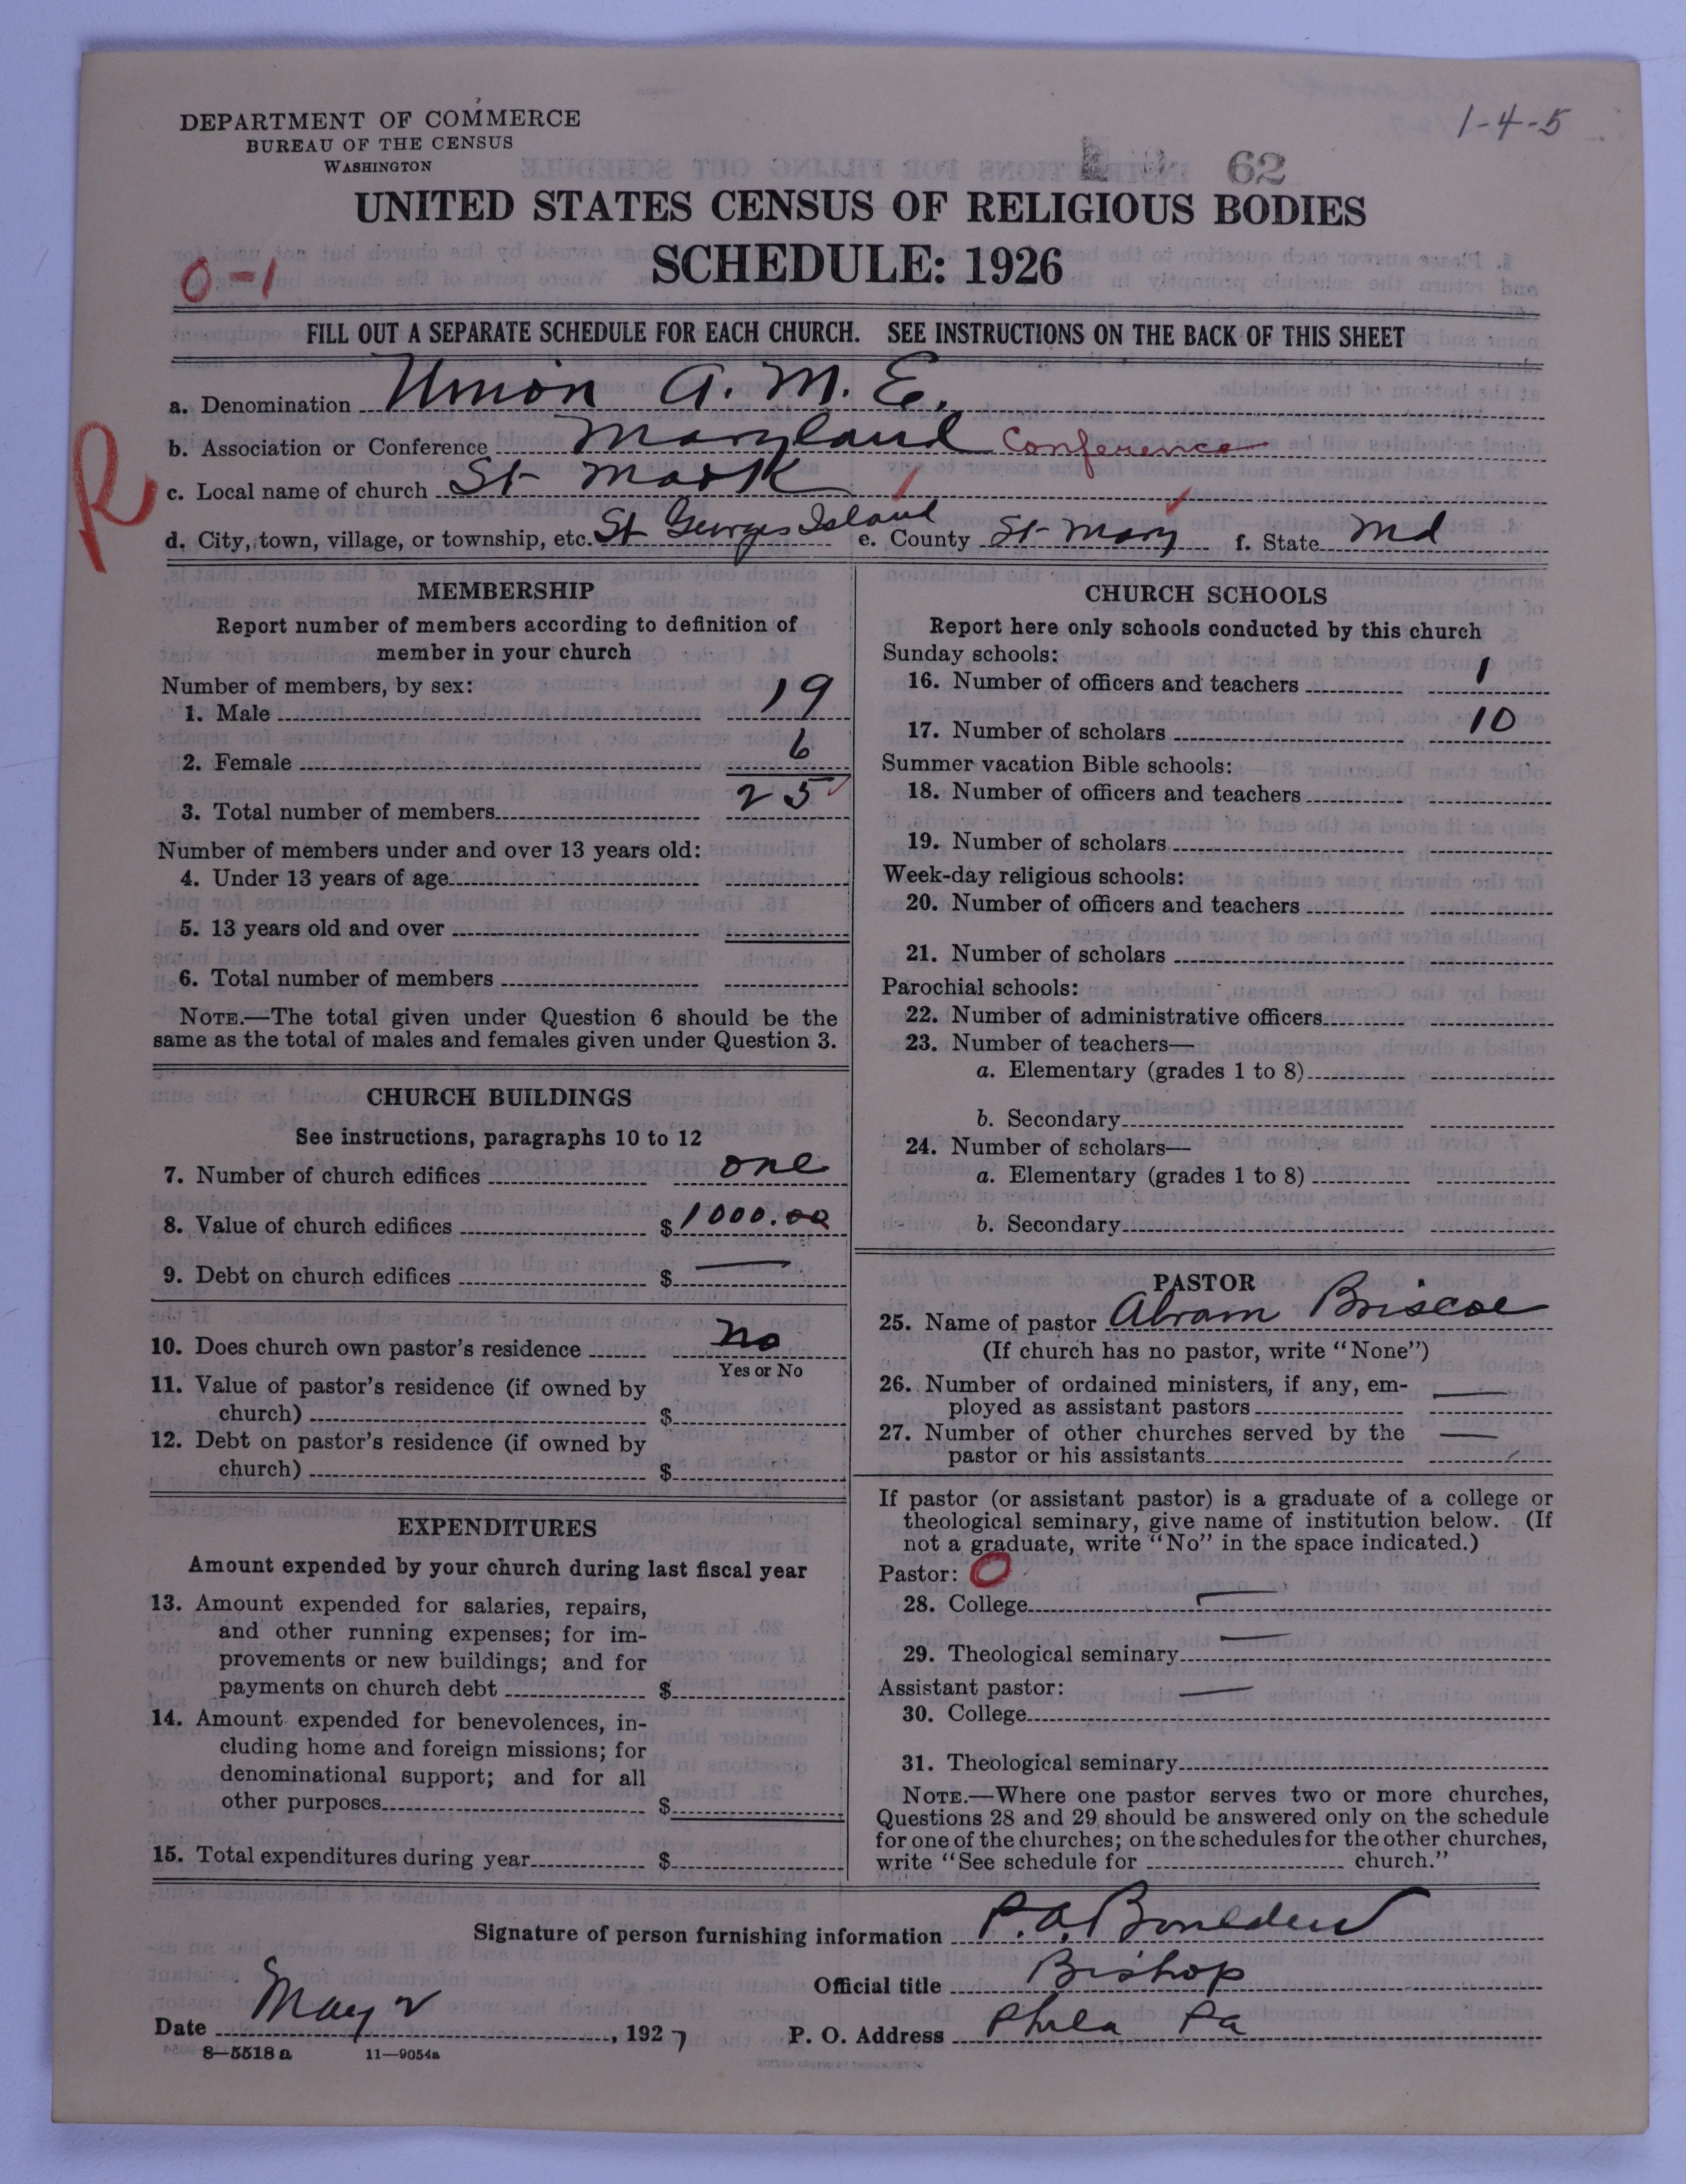 1-4-5
DEPARTMENT OF COMMERCE
BUREAU OF THE CENSUS
WASHINGTON
62
UNITED STATES CENSUS OF RELIGIOUS BODIES
SCHEDULE: 1926
0-1
FILL OUT A SEPARATE SCHEDULE FOR EACH CHURCH. SEE INSTRUCTIONS ON THE BACK OF THIS SHEET
R
a. Denomination Union A. M. E.
b. Association or Conference Maryland Conference
c. Local name of church St Mark
d. City, town, village, or township, etc. St Georges Island e. County St Mary f. State Md
MEMBERSHIP
Report number of members according to definition of
member in your church
Number of members, by sex:
1. Male 19
2. Female 6
3. Total number of members 25
Number of members under and over 13 years old:
4. Under 13 years of age
5. 13 years old and over
6. Total number of members
NOTE.—The total given under Question 6 should be the
same as the total of males and females given under Question 3.
CHURCH BUILDINGS
See instructions, paragraphs 10 to 12
7. Number of church edifices one
8. Value of church edifices $ 1000.00
9. Debt on church edifices $ —
10. Does church own pastor's residence no
Yes or No
11. Value of pastor's residence (if owned by
church) $
12. Debt on pastor's residence (if owned by
church) $
EXPENDITURES
Amount expended by your church during last fiscal year
13. Amount expended for salaries, repairs,
and other running expenses; for im-
provements or new buildings; and for
payments on church debt $
14. Amount expended for benevolences, in-
cluding home and foreign missions; for
denominational support; and for all
other purposes $
15. Total expenditures during year $
CHURCH SCHOOLS
Report here only schools conducted by this church
Sunday schools:
16. Number of officers and teachers 1
17. Number of scholars 10
Summer vacation Bible schools:
18. Number of officers and teachers
19. Number of scholars
Week-day religious schools:
20. Number of officers and teachers
21. Number of scholars
Parochial schools:
22. Number of administrative officers
23. Number of teachers—
a. Elementary (grades 1 to 8)
b. Secondary
24. Number of scholars—
a. Elementary (grades 1 to 8)
b. Secondary
PASTOR
25. Name of pastor Abram Briscoe
(If church has no pastor, write "None")
26. Number of ordained ministers, if any, em-
ployed as assistant pastors —
27. Number of other churches served by the
pastor or his assistants —
If pastor (or assistant pastor) is a graduate of a college or
theological seminary, give name of institution below. (If
not a graduate, write "No" in the space indicated.)
Pastor: O
28. College —
29. Theological seminary —
Assistant pastor: —
30. College
31. Theological seminary
NOTE.—Where one pastor serves two or more churches,
Questions 28 and 29 should be answered only on the schedule
for one of the churches; on the schedules for the other churches,
write "See schedule for church."
Signature of person furnishing information P. A.
Official title Bishop
Date May 2, 1927 P. O. Address Phila Pa
8-5518 a 11—9054a